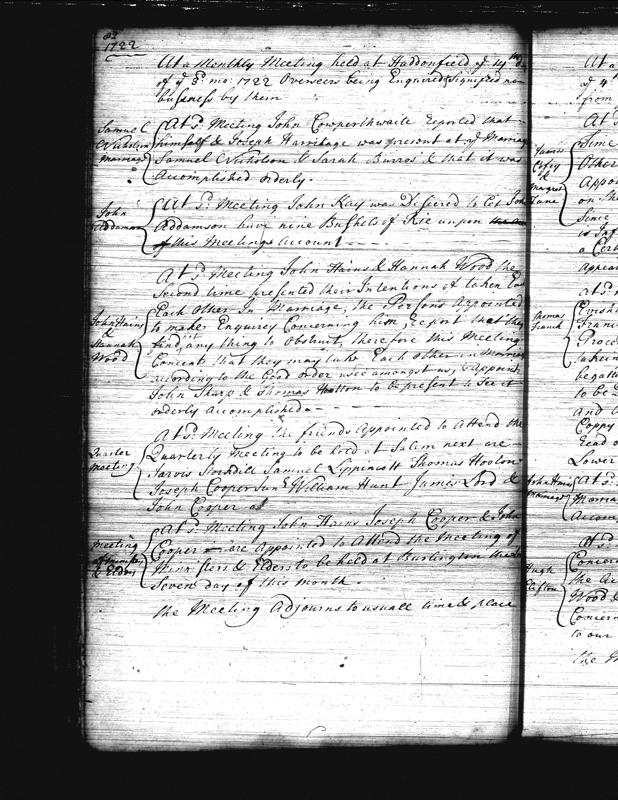 1722
At a Monthly Meeting held at Haddonfield ye 14th
of ye 8: mo: 1722 Overseers being Enquired Signified no
business by them
Samuel
Nicholson
marriage
At sd: Meeting John Cowperthwaite Reported that
himself & Joseph Harritage was present at ye Marriage
Samuel Nicholson & Sarah Burros & that it was
Accomplished orderly.
John
Addaman
At sd: Meeting John Kay was Desiered to Let John
Addamson have nine Bushels of Rie uupon
of this Meetings Account
At sd: Meeting John Hains & Hannah Wood the
Second time presented their Intentions of taken Each
John Hains
&
Hannah
Wood
Each Other in Marriage, the Persons Appointed
to make Enquirey Concerning him, Report that they
find any thing to Obstruct, therefore this Meeting
Concents that they may take Each other in Marriage
according to the Good order used amongst us, & Appoint
John Sharp & Thomas Hooton to be present to See it
orderly accomplished
At sd: Meeting the friends Appointed to Attend the
Quarter
Meeting
Quarterly Meeting to be held at Salem next are
Jarvis Stockdill Samuel Lippincott Thomas Hooton
Joseph Cooper Junr William Hunt James Lord &
John Cooper
Meeting
of ministers
& Elders
At sd: Meeting John Hains Joseph Cooper & John
Cooper are appointed to Attend the Meeting of
Ministers & Elders to be held at Burlington the
Seven day of this month.
the Meeting Adjourns to usuall time & place
James
Margret
Lane
Thomas
French
John Hains
Marriage
Hugh
Clifton
At a
of ye
from
At s
Since
Other
Appoi
on The
Since
is Inf
a Cert
Appear
at sd:
Franci
Proce
to be
and
Coppy
read
Lower
at sd:
Marria
Accom
at sd:
Concer
the Ac
Wood &
Concern
to our
the M